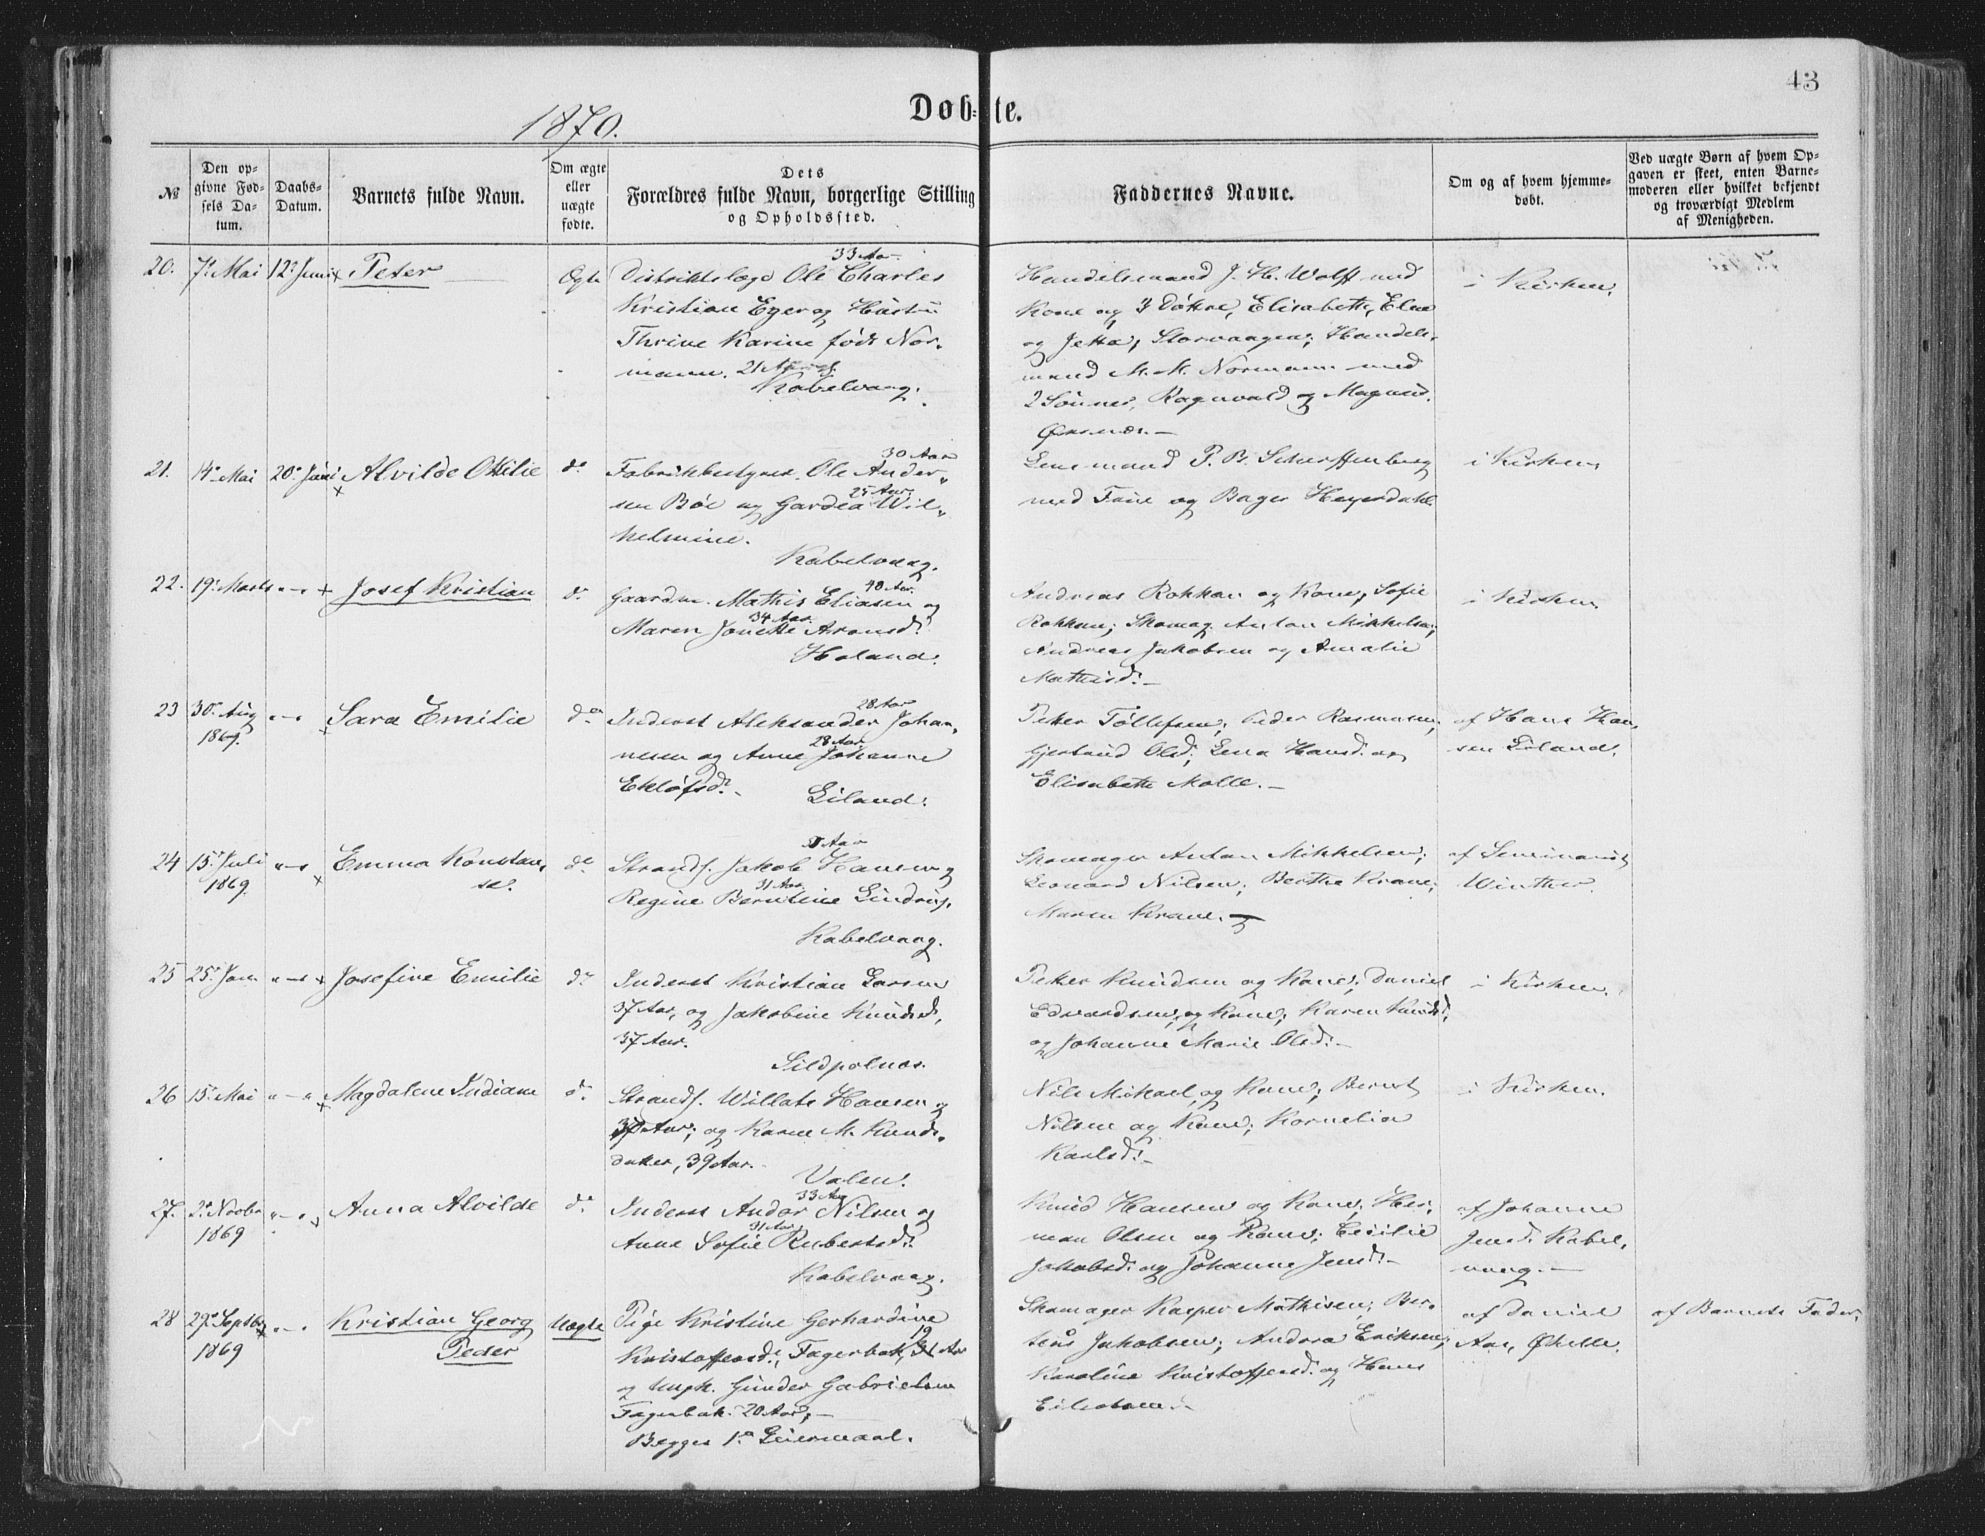 43
1870.
Døb-te.
№
Den op-
givne Fød-
sels Da-
tum.
Daabs-
Datum.
Barnets fulde Navn.
Om ægte
eller
uægte
fødte.
Dets
Forældres fulde Navn, borgerlige Stilling
og Opholdssted.
Faddernes Navne.
Om og af hvem hjemme-
døbt.
Ved uægte Børn af hvem Op-
gaven er skeet, enten Barne-
moderen eller hvilket bekjendt
og troværdigt Medlem
af Menigheden.
20. 7. Mai 12. Juni x Peter Ægte
33 Aar
Distriktslæge Ole Charles
Kristian Eger og Hustru
Thrine Karine født Nor-
mann. 21 Aar
Kabelvaag.
Handelsmand J. H. Wolff med
Kone og 3 Døttre, Elisabeth, Eline
og Jetta, Storvaagen; Handels-
mand M. M. Normann med
2 Sønner, Ragnvald og Magnus.
i Kirken.
21. 14. Mai 20. Juni x Alvilde Ottilie do
30 Aar
Fabrikbestyrer Ole Ander-
25 Aar
sen Böe og Gardea Wil-
helmine.
Kabelvaag.
Lensmand P. B. Scherffenberg
med Frue og Bager Heyerdahl
i Kirken
22. 19. Marts " — " x Josef Kristian do
40 Aar.
Gaardm. Mathis Eliasen og
34 Aar.
Maren Jonette Aronsd.
Holand.
Andreas Rokkan og Kone; Sofie
Rokkan; Skomag. Anton Mikkelsen;
Andreas Jakobsen og Amalie
Mathisd. —
i Kirken
23 30. Aug
1869. " — " x Sara Emilie do
28 Aar
Inderst Aleksander Johan-
28 Aar
nesen og Anne Johanne
Eklöfsd. —
Eiland.
Peter Tollefsen; Peder Rasmusen;
Gjertrud Olsd; Lena Hansd. og
Elisabeth Molle. —
af Hans Han-
sen Eiland.
24 15. Juli
1869. " — " x Emma Konstan-
se. do
Aar
Strands. Jakob Hansen og
31 Aar
Regine Berntine Lindrup.
Kabelvaag.
Skomager Anton Mikkelsen;
Leonard Nilsen; Berthe Krane;
Maren Krane. —
af Seminarist
Winther.
25 25. Jan " — " x Josefine Emilie do
Inderst Kristian Larsen
37 Aar, og Jakobine Knudsd,
37 Aar.
Sildpolnes.
Peter Knudsen og Kone; Daniel
Edvardsen og Kone; Karen Knudsd.
og Johanne Marie Olsd. —
i Kirken.
26 15. Mai " — " x Magdalene Indiane do
Strands. Willats Hansen og
Aar; og Karen M. Knuds-
datter, 39 Aar.
Valen.
Nils Mikael og Kone; Bernt
Nilsen og Kone; Kornelia
Karlsd. —
i Kirken.
27. 2. Novbr
1869 " — " x Anna Alvilde do
33 Aar
Inderst Andor Nilsen og
31 Aar
Anne Sofie Rubertsd.
Kabelvaag.
Knud Hansen og Kone; Her-
man Olsen og Kone; Cecilie
Jakobsd. og Johanne Jensd. —
af Johanne
Jensd. Kabel-
vaag. —
28 29. Septbr
1869 x " — " Kristian Georg
Peder Uægte
Pige Kristine Gerhardine
19
Kristoffersd., Fagerbak, Aar
og Ungk. Gunder Gabrielsen
Fagerbak. 20 Aar, —
Begges 1. Leiermaal.
Skomager Kasper Mathisen; Ber-
teus Jakobsen; Andrea Eriksen;
Karoline Kristoffersd. og Hans
af Daniel
Aas, Ørhelle.
af Barnets Fader.